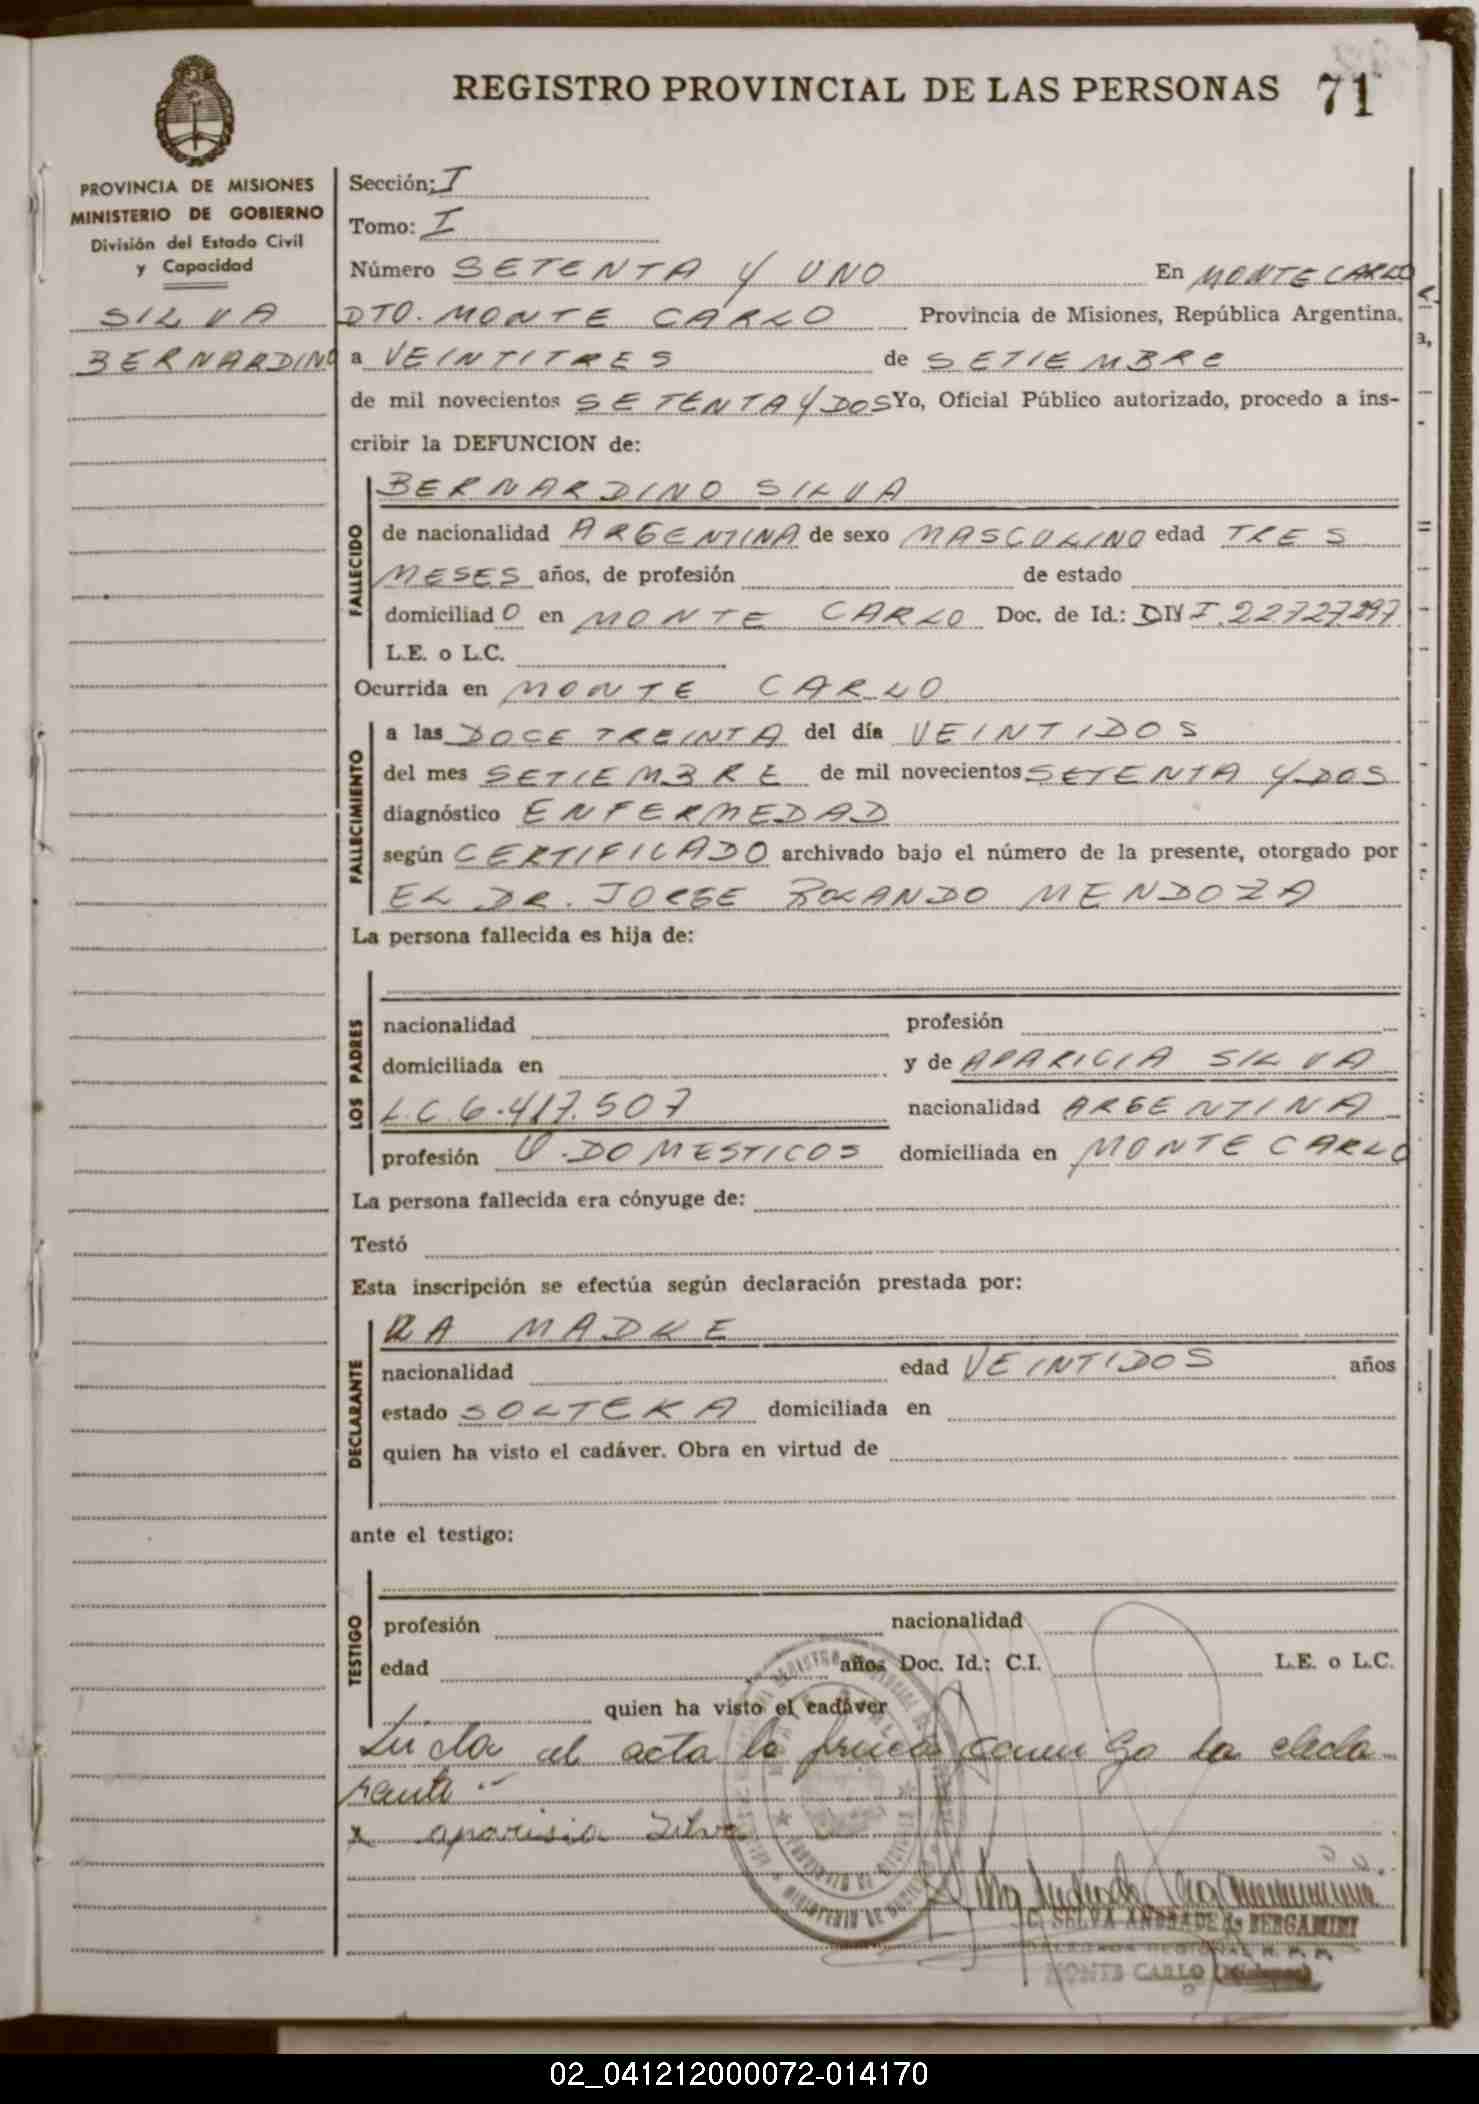 REGISTRO PROVINCIAL DE LAS PERSONAS 71
PROVINCIA DE MISIONES
MINISTERIO DE GOBIERNO
División del Estado Civil
y Capacidad
SILVA
BERNARDINO
Sección: I
Tomo: I
Número SETENTA Y UNO En MONTE CARLO
DTO. MONTE CARLO Provincia de Misiones, República Argentina,
a VEINTITRES de SETIEMBRE
de mil novecientos SETENTA Y DOS Yo, Oficial Público autorizado, procedo a ins-
cribir la DEFUNCION de:
FALLECIDO
BERNARDINO SILVA
de nacionalidad ARGENTINA de sexo MASCULINO edad TRES
MESES años, de profesión de estado
domiciliado en MONTE CARLO Doc. de Id.: DNI. 22.727.297
L.E. o L.C.
Ocurrida en MONTE CARLO
FALLECIMIENTO
a las DOCE TREINTA del día VEINTIDOS
del mes SETIEMBRE de mil novecientos SETENTA Y DOS
diagnóstico ENFERMEDAD
según CERTIFICADO archivado bajo el número de la presente, otorgado por
EL DR. JORGE ROLANDO MENDOZA
La persona fallecida es hija de:
LOS PADRES
nacionalidad profesión
domiciliada en y de APARICIA SILVA
L.C. 6.417.507 nacionalidad ARGENTINA
profesión Q. DOMESTICOS domiciliada en MONTE CARLO
La persona fallecida era cónyuge de:
Testó
Esta inscripción se efectúa según declaración prestada por:
DECLARANTE
LA MADRE
nacionalidad edad VEINTIDOS años
estado SOLTERA domiciliada en
quien ha visto el cadáver. Obra en virtud de
ante el testigo:
TESTIGO
profesión nacionalidad
edad años Doc. Id.: C.I. L.E. o L.C.
quien ha visto el cadáver
Leída el acta la firma conmigo la decla
rante.-
x aparisia Silva
C. SELVA ANDRADE de BERGAMINI
DELEGADA REGIONAL R. P. P.
MONTE CARLO
02_041212000072-014170